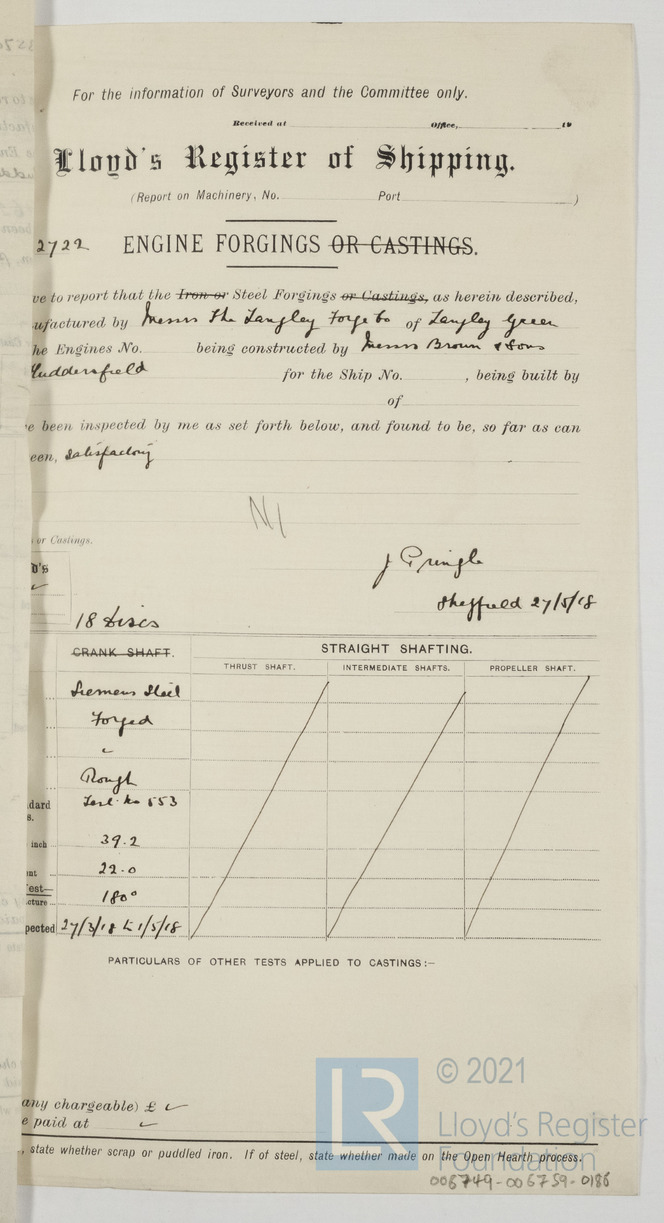 For the information of Surveyors and the Committee only.
Received at Office, 19
Lloyd's Register of Shipping.
(Report on Machinery, No. Port )
2722 ENGINE FORGINGS OR CASTINGS.
ve to report that the Iron or Steel Forgings or Castings, as herein described,
ufactured by Messrs The Langley Forge Co of Langley Green
he Engines No. being constructed by Messrs Brown & Sons
Huddersfield for the Ship No. , being built by
of
e been inspected by me as set forth below, and found to be, so far as can
een, satisfactory
N
or Castings.
J Pringle
D's
Sheffield 27/5/18
18 Discs
CRANK SHAFT. STRAIGHT SHAFTING.
THRUST SHAFT. INTERMEDIATE SHAFTS. PROPELLER SHAFT.
... Siemens Steel
... Forged
...
... Rough
dard Test No 553
s.
inch 39.2
nt ... 22.0
est—
cture ... 180°
pected 27/3/18 to 1/5/18
PARTICULARS OF OTHER TESTS APPLIED TO CASTINGS:—
any chargeable) £
e paid at
, state whether scrap or puddled iron. If of steel, state whether made on the Open Hearth process.
LR
© 2021
Lloyd's Register
Foundation
006749-006759-0186